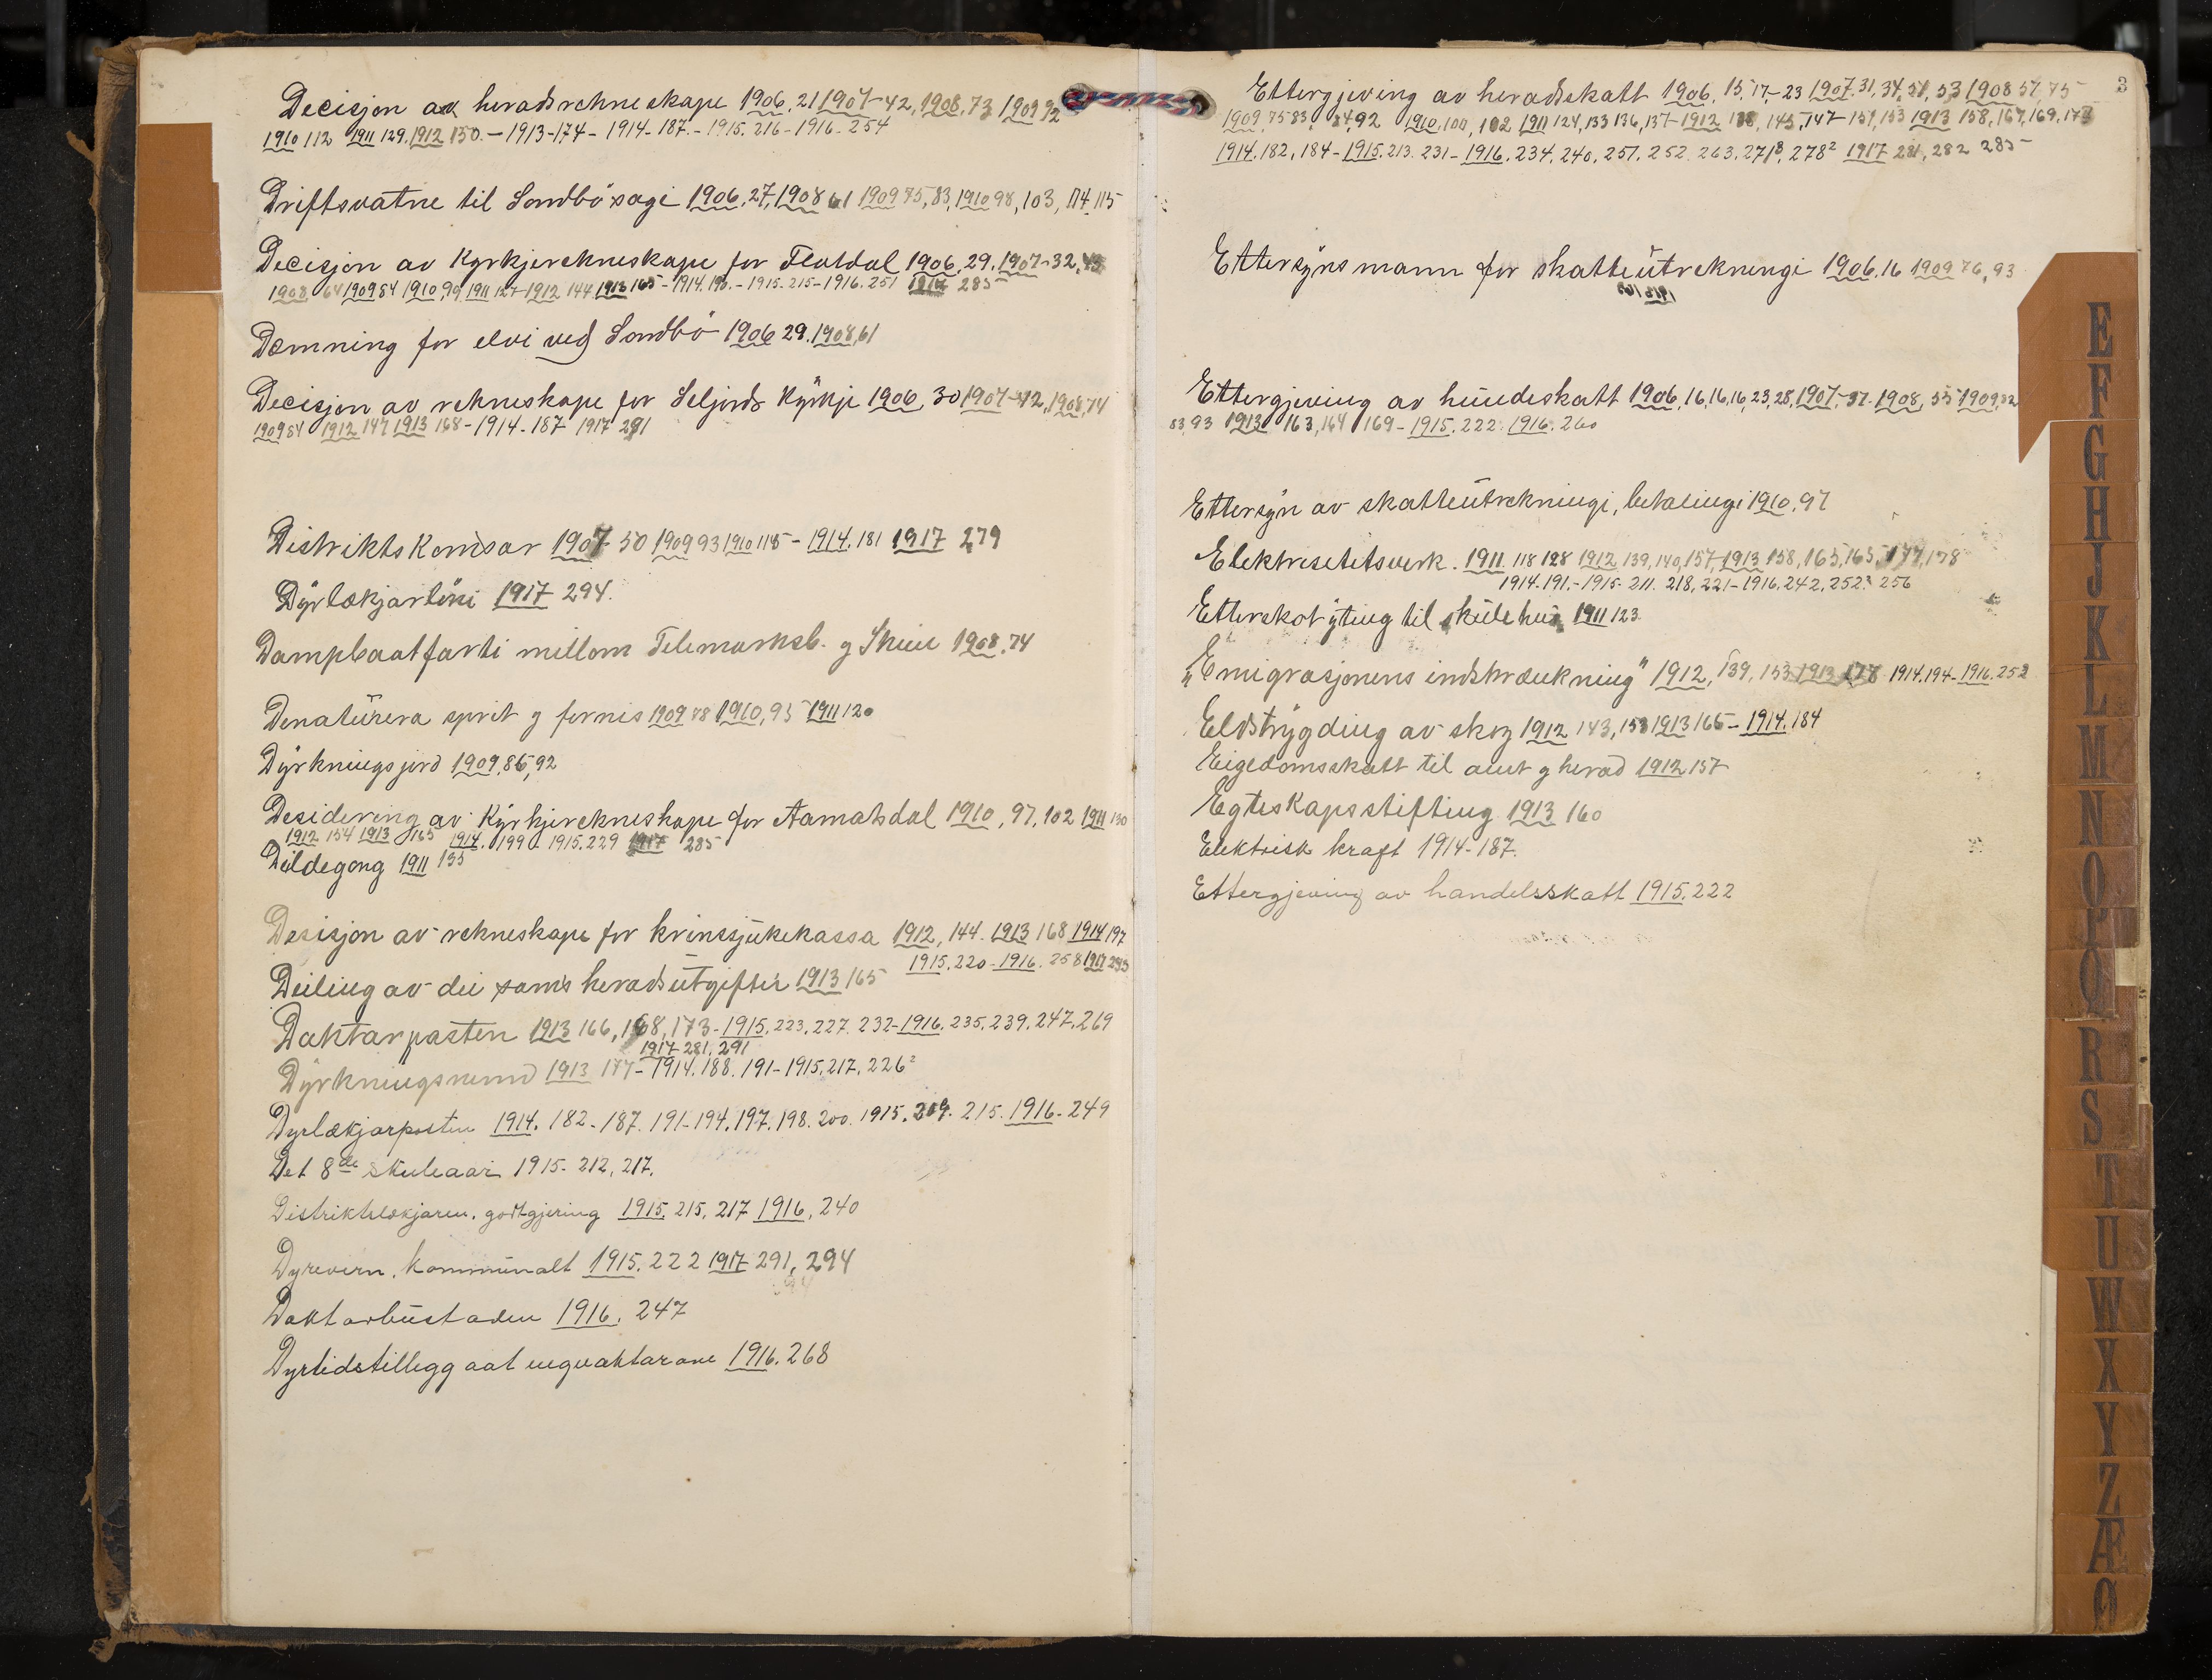 Decisjon av heradsrekneskape 1906, 21 1907-42, 1908, 73 1909 92
1910 112 1911 129, 1912 150. - 1913-174 - 1914-187. - 1915. 216 - 1916-254
Driftsvatne til Sondbösagi 1906, 27, 1908 61 1909 75, 83, 1910 98, 103, 114, 115
Decisjon av Kyrkjerekneskape for Flatdal 1906. 29. 1907-32, 43
1908, 64 1909 84 1910, 99, 1911 127-1912 144 1913 165 - 1914. 196. - 1915. 215 - 1916. 251 1917 285
Dæmning for elvi ved Sondbö 1906 29. 1908, 61
Decisjon av rekneskape for Seljords Kyrkje 1906, 30 1907-42, 1908, 74
1909 84 1912 147 1913 168 - 1914. 187 1917 291
Distriktskomisar 1907-50 1909 93 1910 115 - 1914. 181 1917 279
Dýrlækjarlöni 1917 294.
Dampbaatfarti millom Telemarksb. g Skien 1908, 74
Denatürera sprit g fernis 1909 78 1910, 95 1911 120
Dýrkningsjord 1909, 86, 92
Desidering av Kýrkjerekneskape for Aamotsdal 1910, 97, 102 1911 130
1912 154 1913 165 1914. 199. 1915, 229 1917 285
Deildegong 1911 135
Desisjon av rekneskape for krinssjükekassa 1912, 144. 1913 168 1914 197
1915, 220 - 1916. 258 1917 293
Deiling av dei sams heradsütgifter 1913 165
Daktarpasten 1913 166, 168, 173 - 1915, 223, 227. 232 - 1916, 235, 239, 247, 269
1917 281, 291
Dýrkningsmund 1913 177 - 1914. 188. 191 - 1915, 217, 226²
Dyrlækjarposten 1914. 182. 187. 191-194. 197. 198. 200. 1915. 209. 215. 1916. 249
Det 8de skuleaar 1915. 212, 217.
Distriktslækjaren. godtgjering 1915. 215, 217 1916, 240
Dyrevern, kommünalt 1915. 222 1917 291, 294
Daktarbüstaden 1916. 247
Dyrtidstillegg aat vegvaktarane 1916. 268
3
Ettergjeving av heradskatt 1906, 15, 17, - 23 1907. 31, 34, 51, 53 1908 54, 75
1909, 75 83, 84, 92 1910, 100, 102 1911 124, 133 136, 137 - 1912 138, 145, 147 - 151, 153 1913 158, 167, 169, 173
1914. 182, 184 - 1915. 213. 231 - 1916. 234, 240, 251, 252, 263, 271³, 278² 1917 281, 282 285
Ettersýnsmann for skatteütrekningi 1906, 16 1909 76, 93
Ettergjeving av hündeskatt 1906, 16, 16, 16, 23, 28, 1907, 37. 1908, 55 1909, 82
83, 93 1913 163, 164 169 - 1915. 222. 1916. 260
Ettersýn av skatteütrekningi, betalingi 1910, 97
Elektrisetetsverk. 1911. 118 128 1912 139, 140, 157, 1913 158, 165, 165, 177, 178
1914. 191. - 1915. 211. 218, 221 - 1916, 242, 252³ 256
Etterskotýting til skülehus 1911 123
"Emigrasjonens indskrænkning" 1912, 139, 153 1913 178 1914. 194 - 1916. 252
Eldstrýgding av skog 1912 143, 153 1913 165 - 1914. 184
Eigedomsskatt til amt g herad 1912 157
Egteskapsstifting 1913 160
Elektrisk kraft 1914-187.
Ettergjeving av handelsskatt 1915. 222
E
F
G
H
J
K
L
M
N
O
P
Q
R
S
T
U
W
X
Y
Z
Æ
Ø